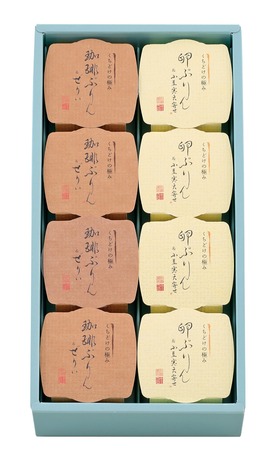 くちどけの極み
珈琲ぷりん
ぜりい
くちどけの極み
卵ぷりん
小豆寒天寄せ
くちどけの極み
珈琲ぷりん
ぜりい
くちどけの極み
卵ぷりん
小豆寒天寄せ
くちどけの極み
珈琲ぷりん
ぜりい
くちどけの極み
卵ぷりん
小豆寒天寄せ
くちどけの極み
珈琲ぷりん
ぜりい
くちどけの極み
卵ぷりん
小豆寒天寄せ